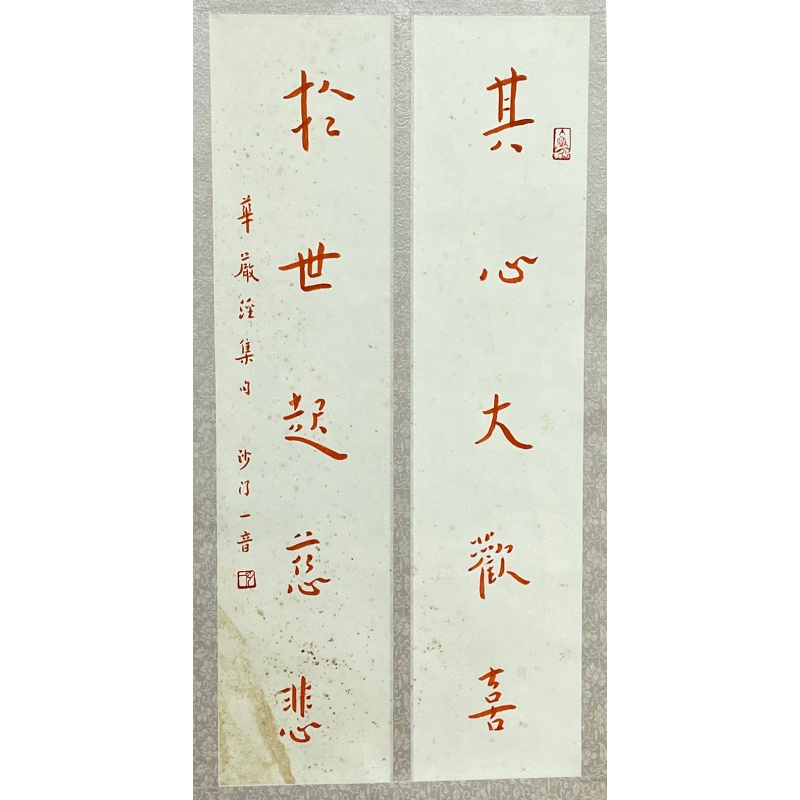 其心大歡喜
於世起慈悲
華嚴經集句 沙門一音